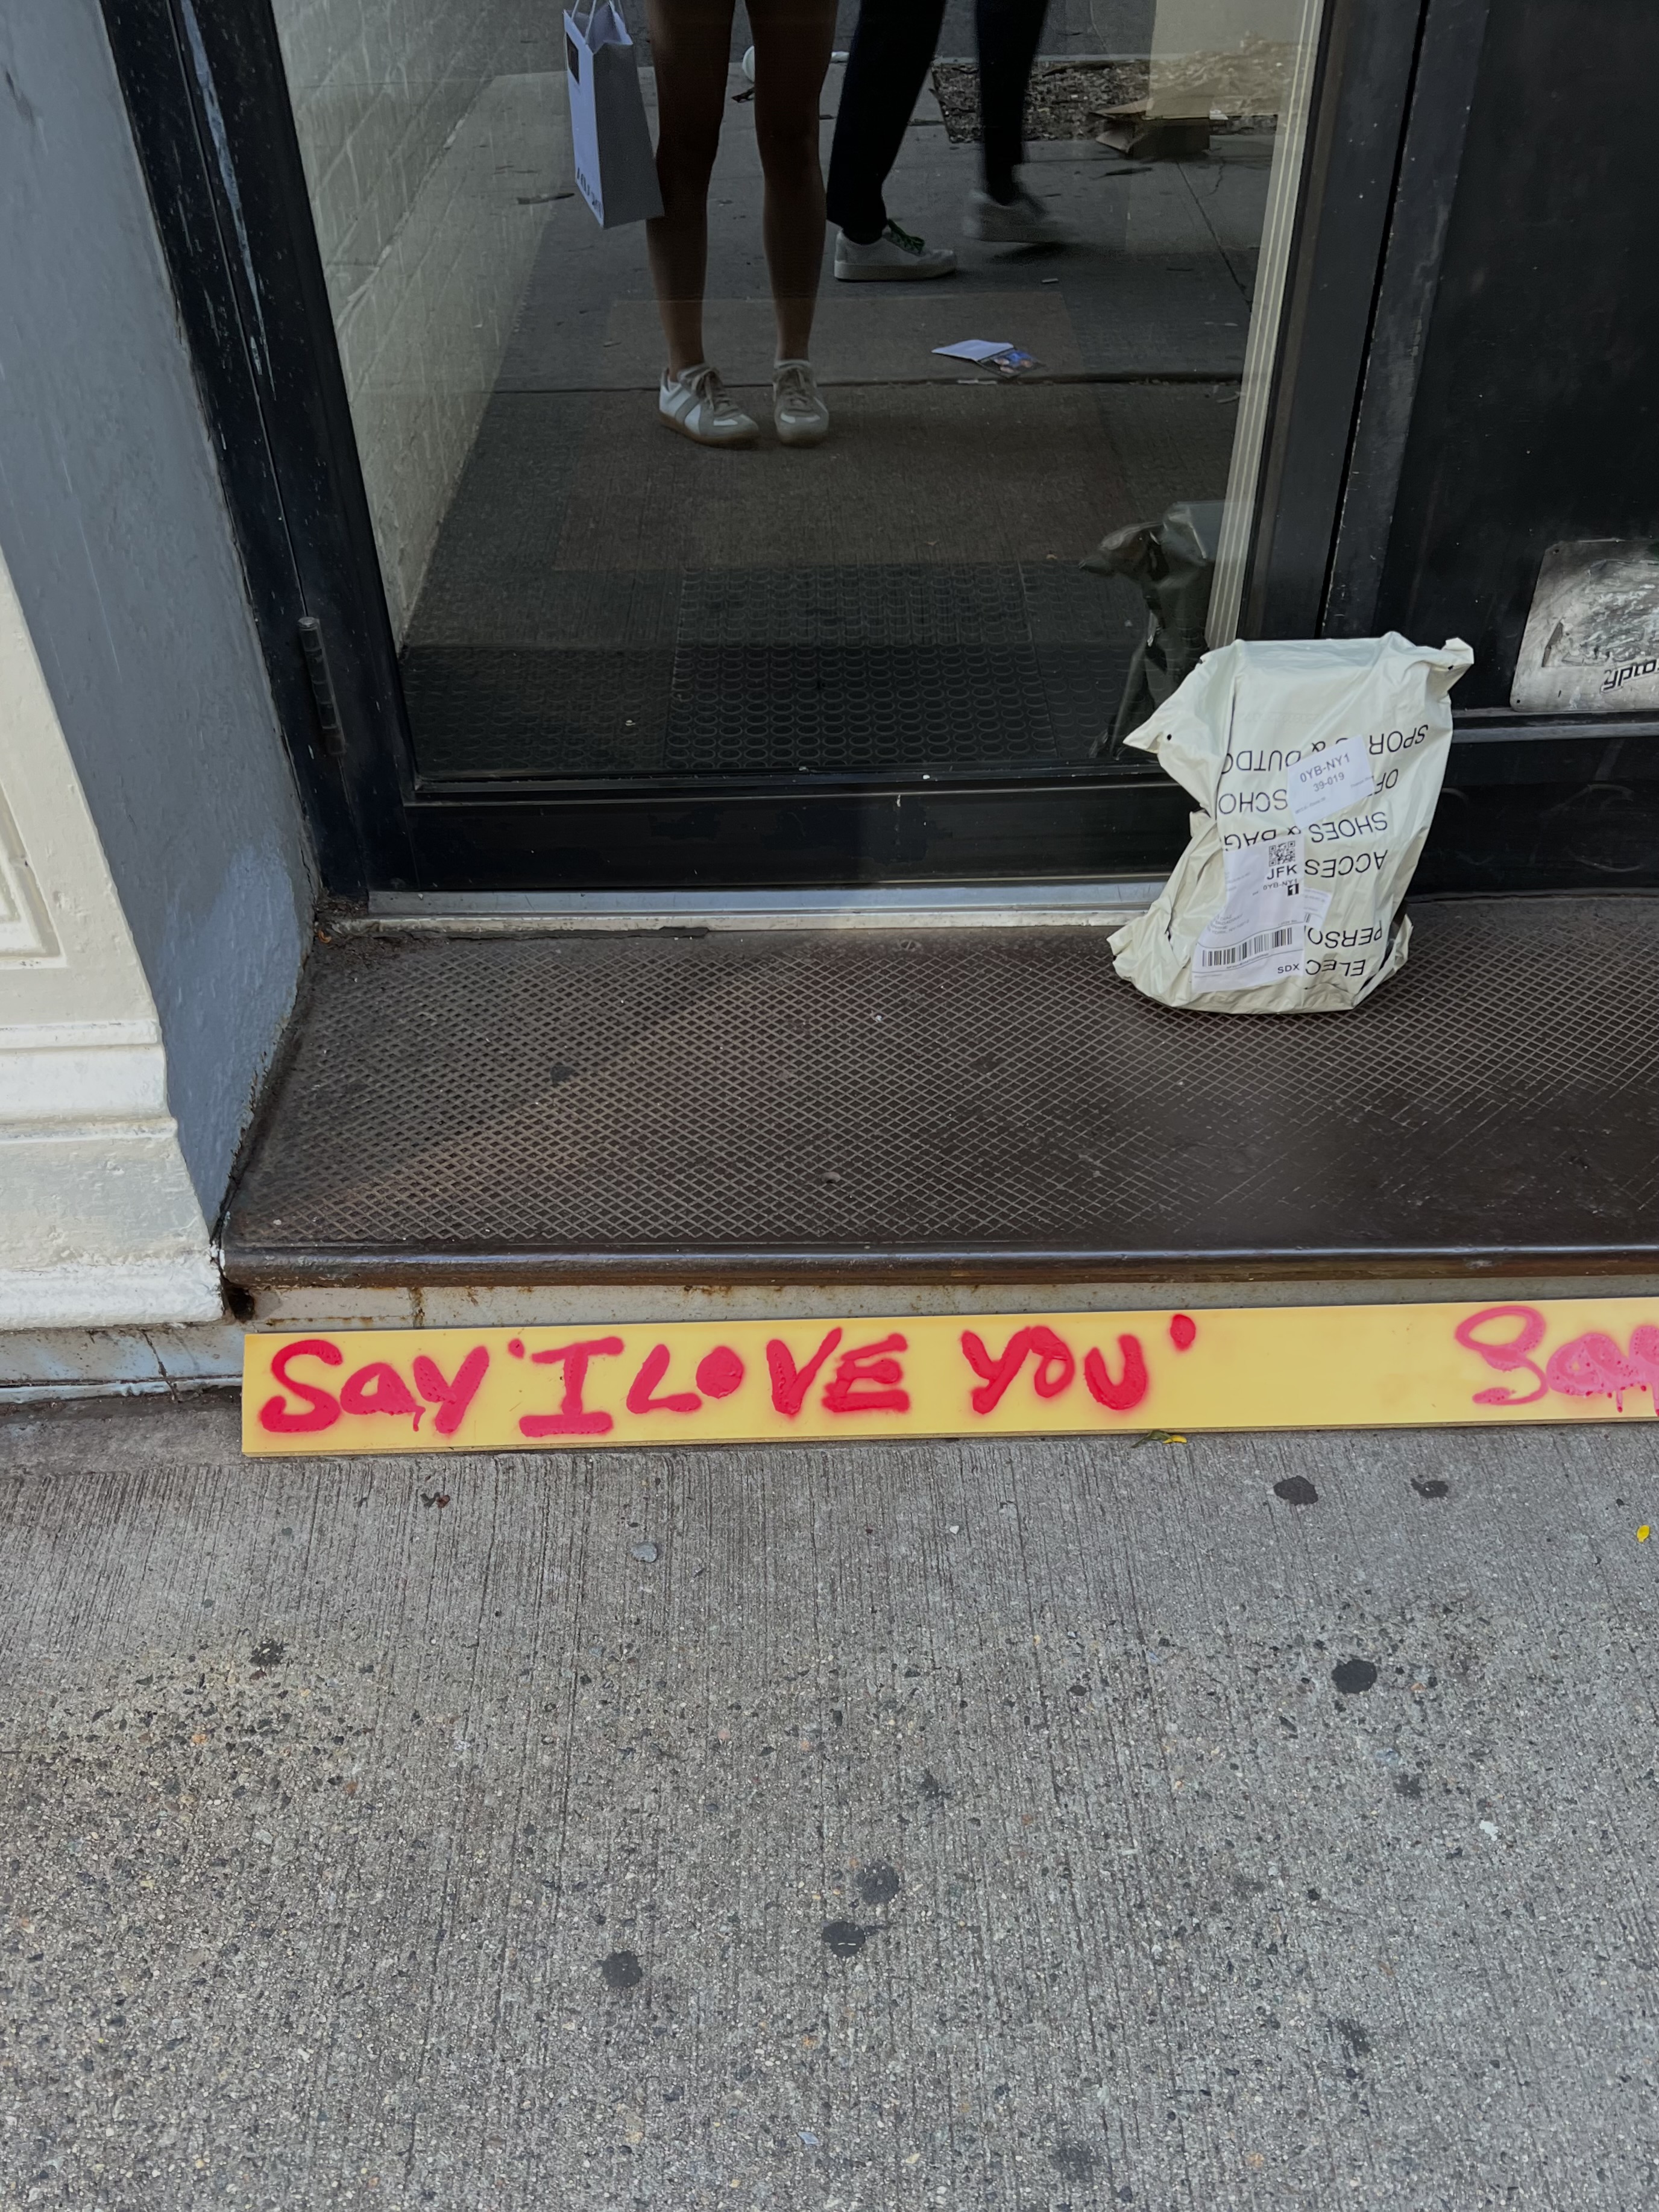 SPOR
& OUTDO
OF
SCHO
SHOES & BAG
ACCES
PERSO
ELEC
0YB-NY1
39-019
JFK
0YB-NY1
1
SDX
Say 'I LOVE YOU'
Say